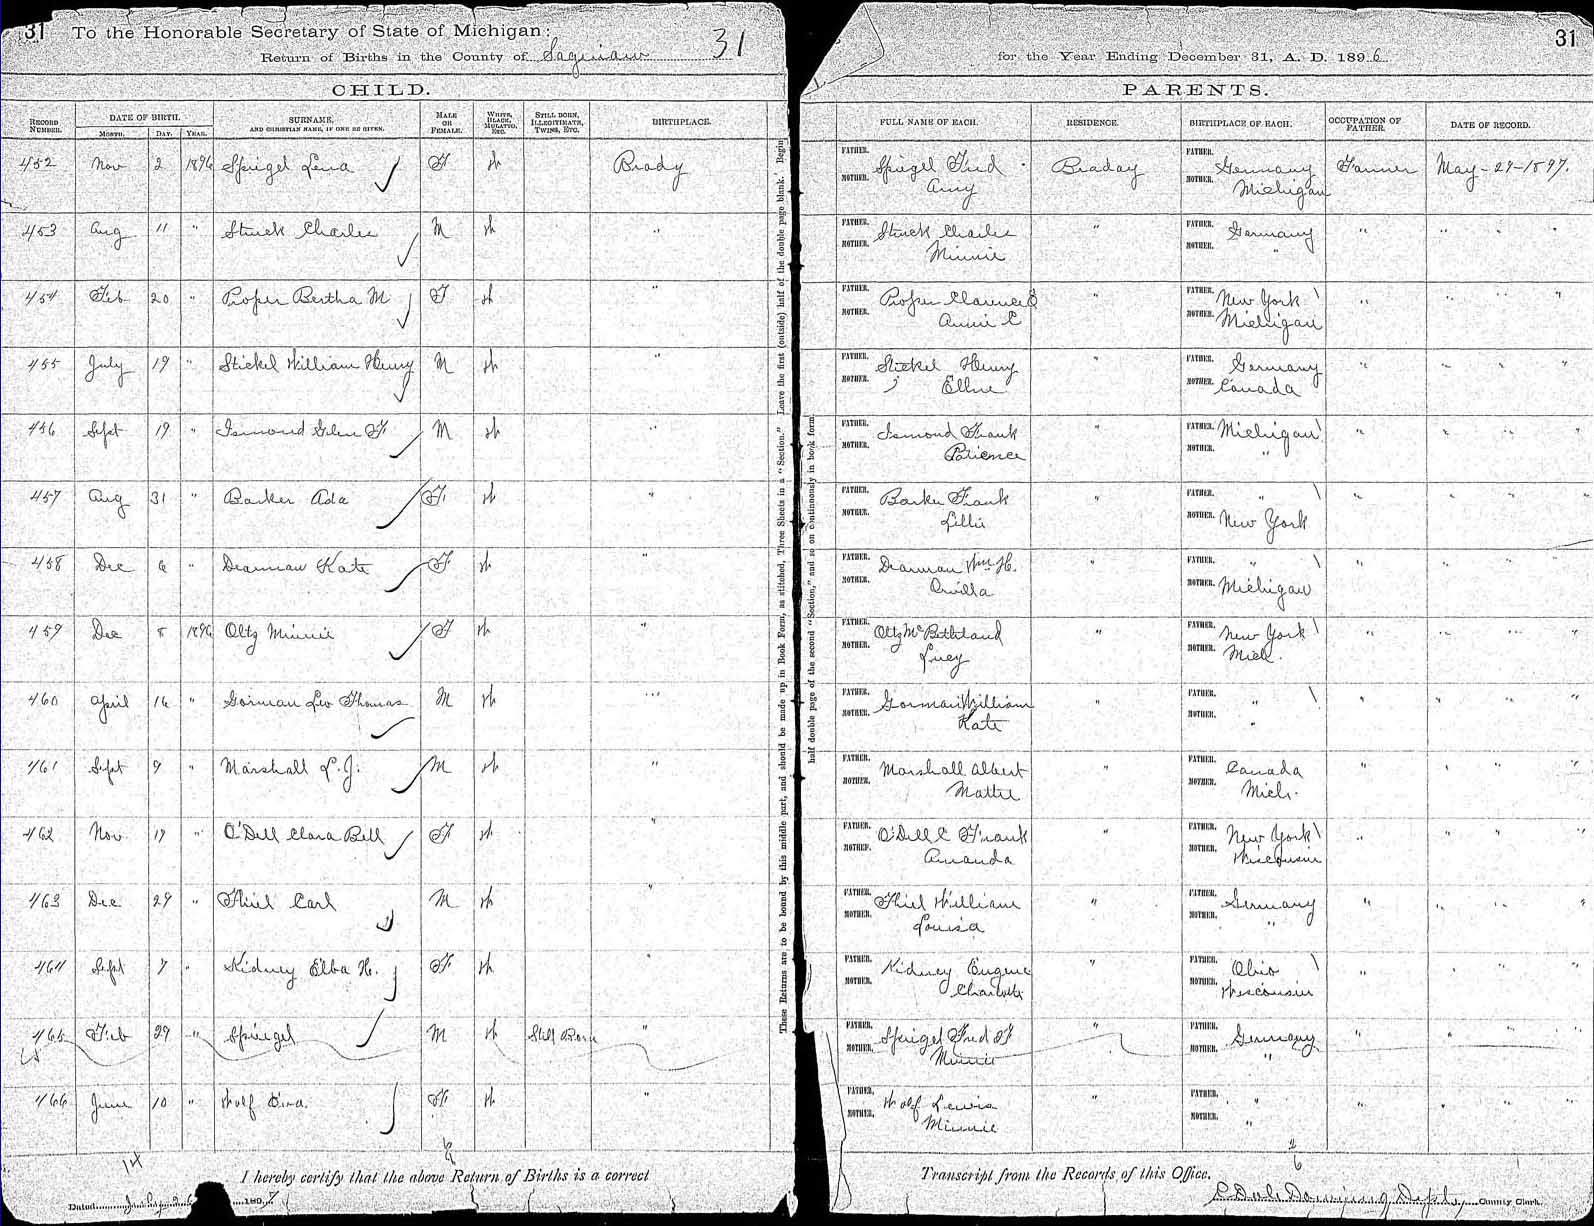 31 To the Honorable Secretary of State of Michigan: 31 31
Return of Births in the County of Saginaw for the Year Ending December 31, A. D. 1896
CHILD. PARENTS.
RECORD NUMBER. DATE OF BIRTH. MONTH. DAY. YEAR. SURNAME, AND CHRISTIAN NAME, IF ONE BE GIVEN. MALE OR FEMALE. WHITE, BLACK, MULATTO, ETC. STILL BORN, ILLEGITIMATE, TWINS, ETC. BIRTHPLACE. FULL NAME OF EACH. RESIDENCE. BIRTHPLACE OF EACH. OCCUPATION OF FATHER. DATE OF RECORD.
452 Nov 2 1896 Spiegel Lena F Wh Brady FATHER. Spiegel Fred Braday FATHER. Germany Farmer May-29-1897.
MOTHER. Amy MOTHER. Michigan
453 Aug 11 " Struck Charles M Wh " FATHER. Struck Charles " FATHER. Germany " " " "
MOTHER. Minnie MOTHER. "
454 Feb 20 " Proper Bertha M F Wh " FATHER. Proper Clarence " FATHER. New York " " " "
MOTHER. Annie E MOTHER. Michigan
455 July 19 " Stickel William Henry M Wh " FATHER. Stickel Henry " FATHER. Germany " " " "
MOTHER. Ellne MOTHER. Canada
456 Sept 19 " Ismond Glen F. M Wh " FATHER. Ismond Frank " FATHER. Michigan " " " "
MOTHER. Patience MOTHER. "
457 Aug 31 " Barker Ada F. Wh " FATHER. Barker Frank " FATHER. " " " " "
MOTHER. Lillie MOTHER. New York
458 Dec 6 " Dearman Kate F. Wh " FATHER. Dearman Wm H. " FATHER. " " " " "
MOTHER. Orvilla MOTHER. Michigan
459 Dec 8 1896 Oltz Minnie F Wh " FATHER. Oltz " FATHER. New York " " " "
MOTHER. Lucy MOTHER. Mich.
460 April 16 " Gorman Leo Thomas M Wh " FATHER. Gorman William " FATHER. " " " " "
MOTHER. Kate MOTHER. "
461 Sept 9 " Marshall L. J. M Wh " FATHER. Marshall Albert " FATHER. Canada " " " "
MOTHER. Mattie MOTHER. Mich.
462 Nov. 19 " O'Dell Clara Bell F. Wh " FATHER. O'Dell C Frank " FATHER. New York " " " "
MOTHER. Amanda MOTHER. Wisconsin
463 Dec 29 " Thiel Carl M Wh " FATHER. Thiel William " FATHER. Germany " " " "
MOTHER. Louisa MOTHER. "
464 Sept 7 " Kidney Elba H. F. Wh " FATHER. Kidney Eugene " FATHER. Ohio " " " "
MOTHER. Charlotte MOTHER. Wisconsin
465 Feb 29 " Spiegel M Wh Still Born " FATHER. Spiegel Fred F " FATHER. Germany " " " "
MOTHER. Minnie MOTHER. "
466 June 10 " Wolf F. Wh " FATHER. Wolf Lewis " FATHER. " " " " "
MOTHER. Minnie MOTHER. "
These Returns are to be bound by this middle part, and should be made up in Book Form, as stitched, Three Sheets in a "Section." Leave the first (outside) half of the double page blank. Begin
half double page of the second "Section," and so on continuously in book form
14
I hereby certify that the above Return of Births is a correct Transcript from the Records of this Office.
Dated 1897 County Clerk.